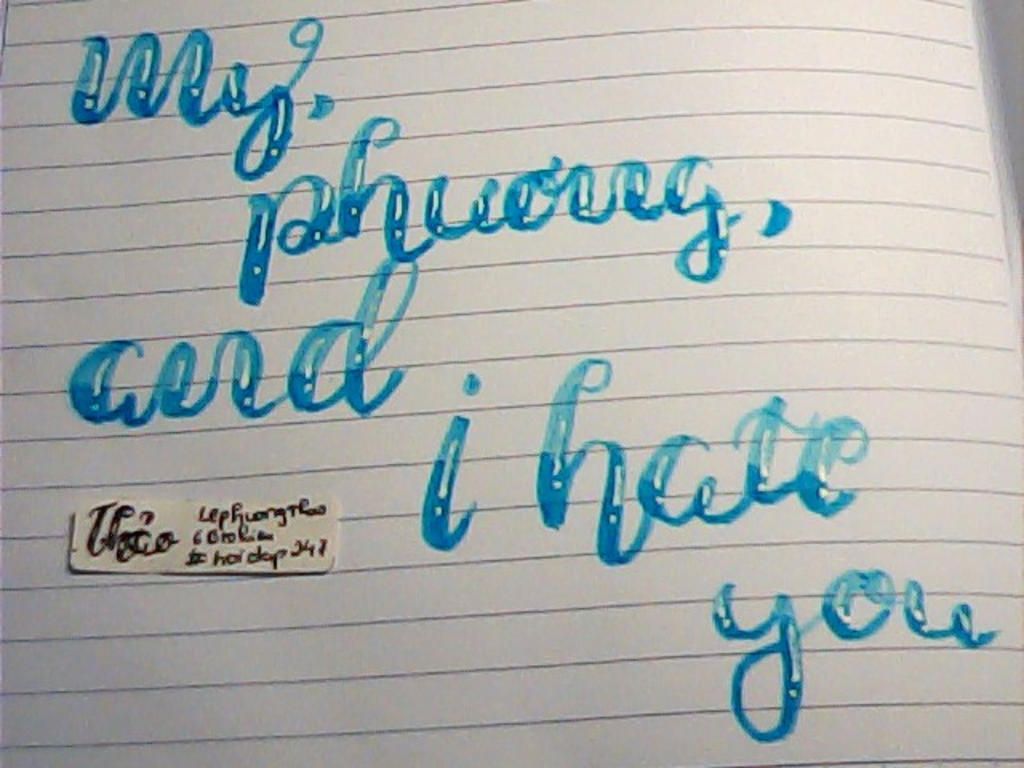 My,
phuong,
and
i hate
you
Thảo
Lephuongthao
hoidap247